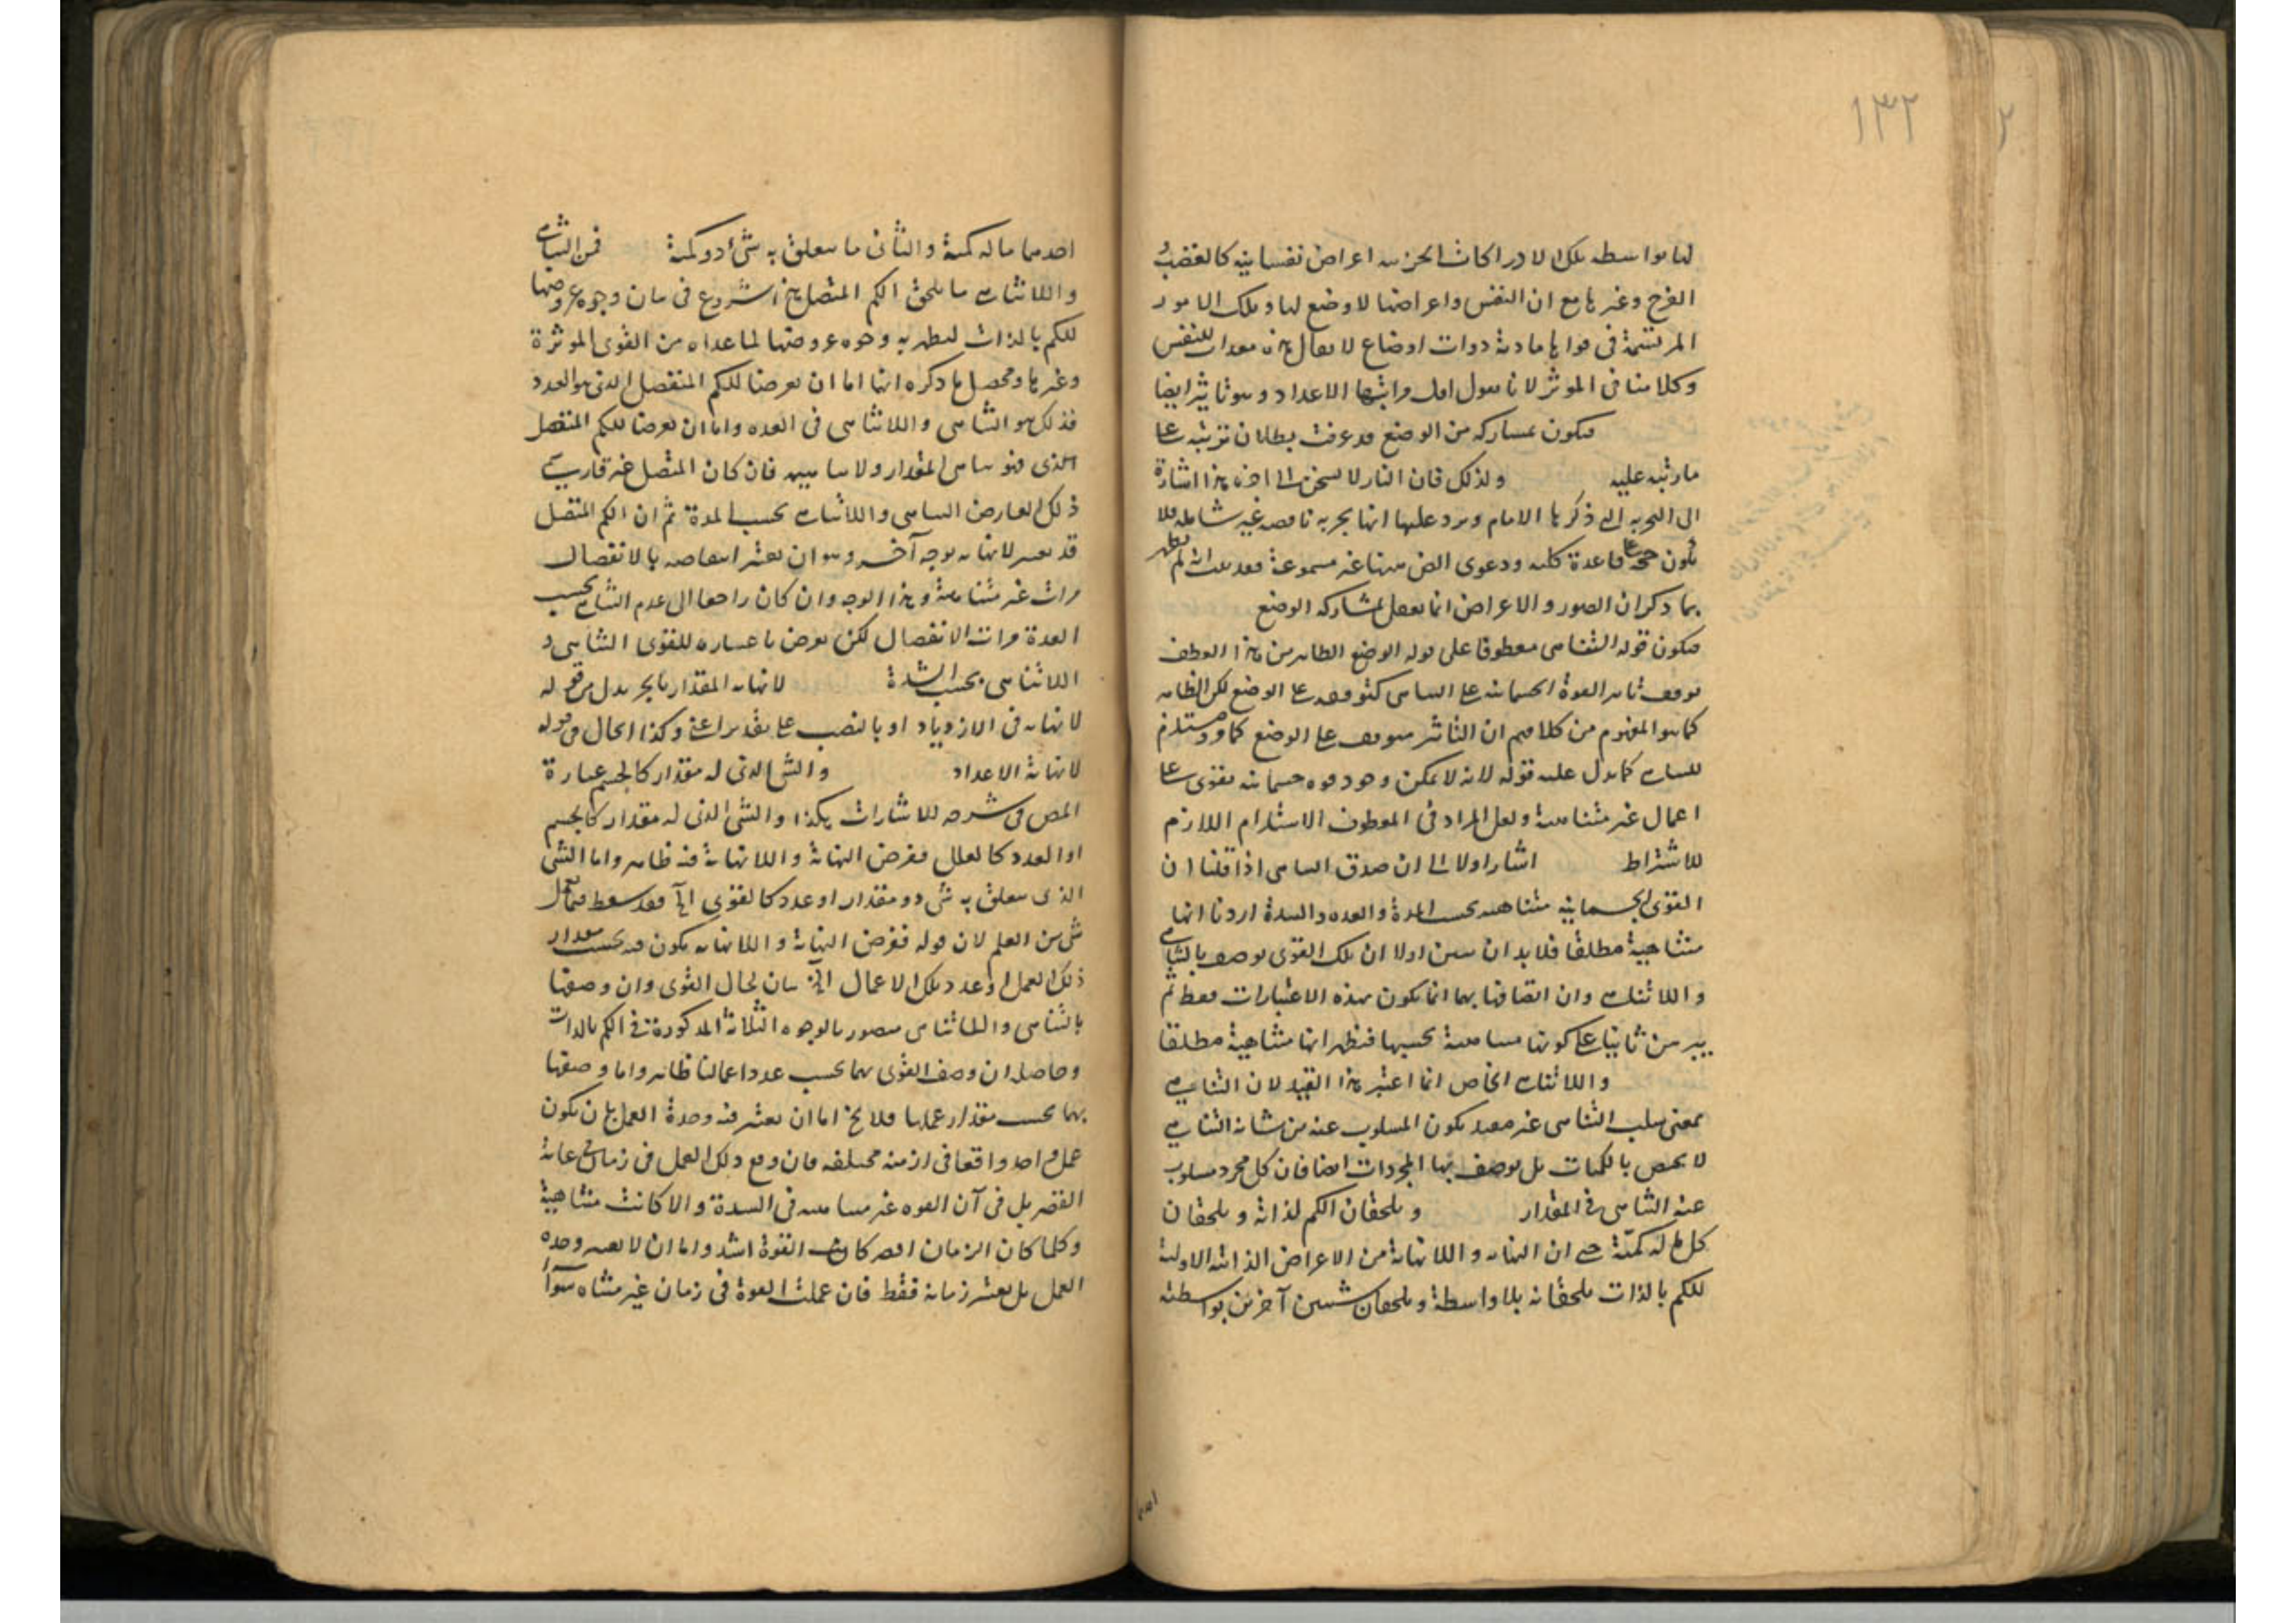 ١٣٢
لها بواسطة تلك الادراكات الجزئية اعراض نفسانية كالغضب و
الفرح وغيرها مع ان النفس واعراضها لا وضع لها وتلك الامور
المرتسمة في قواها مادية ذوات اوضاع لا يقال هذه معدات للنفس
وكلامنا في الموثر لانا نقول اول مراتبها الاعداد وهو تاثير ايضا
فيكون بمشاركة من الوضع وقد عرفت بطلان ترتبه على
ما رتبه عليه ولذلك فان النار لا تسخن الى اخره هذا اشارة
الى التجربة التي ذكرها الامام ويرد عليها انها تجربة ناقصة غير شاملة فلا
تكون حجة على قاعدة كلية ودعوى الض ههنا غير مسموعة فقد ثبت انه لم يظهر
بما ذكر ان الصور والاعراض انما تفعل بمشاركة الوضع
فيكون قوله التناهى معطوفا على قوله الوضع الظاهر من هذا العطف
توقف تاثير القوة الجسمانية على التناهى كتوقفه على الوضع لكن الظاهر
كما هو المفهوم من كلامهم ان التاثير متوقف على الوضع كما مر ومستلزم
للتناهى كما يدل عليه قوله لانه لا يمكن وجود قوة جسمانية تقوى على
اعمال غير متناهية ولعل المراد في المعطوف الاستلزام اللازم
للاشتراط اشار اولا الى ان صدق التناهى اذا قلنا ان
القوى الجسمانية متناهية بحسب المدة والعدة والشدة اردنا انها
متناهية مطلقا فلا بد ان يبين اولا ان تلك القوى توصف بالتناهى
واللاتناهى وان اتصافها بهما انما يكون بهذه الاعتبارات فقط ثم
يبرهن ثانيا على كونها متناهية بحسبها فتظهر انها متناهية مطلقا
واللاتناهى الخاص انما اعتبر هذا القيد لان التناهى
بمعنى سلب التناهى غير مقيد بكون المسلوب عنه من شانه التناهى
لا يختص بالكميات بل توصف بها المجردات ايضا فان كل مجرد مسلوب
عنه التناهى في المقدار ويلحقان الكم لذاته ويلحقان
كل ما له كمية حتى ان النهاية واللانهاية من الاعراض الذاتية الاولية
للكم بالذات يلحقانه بلا واسطة ويلحقان شيئين آخرين بواسطته
احدهما
احدهما ما له كمية والثاني ما يتعلق به شيء ذو كمية فمن التناهى
واللاتناهى ما يلحق الكم المتصل هذا شروع في بيان وجوه عروضها
للكم بالذات ليظهر به وجوه عروضها لما عداه من القوى الموثرة
وغيرها ومحصل ما ذكره انها اما ان يعرضا للكم المنفصل الذي هو العدد
فذلك هو التناهى واللاتناهى في العدة واما ان يعرضا للكم المتصل
الذي هو تناهى المقدار ولا تناهيه فان كان المتصل غير قار يسمى
ذلك العارض التناهى واللاتناهى بحسب المدة ثم ان الكم المتصل
قد يعتبر لانهايته بوجه آخر وهو ان يعتبر انتقاصه بالانفصال
مرات غير متناهية وهذا الوجه وان كان راجعا الى عدم التناهى بحسب
العدة مرات الانفصال لكن يعرض باعتباره للقوى التناهى و
اللاتناهى بحسب الشدة لانهاية المقدار بالجر بدل من قوله
لانهاية في الازدياد او بالنصب على تقدير اعنى وكذا الحال في قوله
لانهاية الاعداد والشيء الذي له مقدار كالجسم عبارة
المص في شرحه للاشارات هكذا والشيء الذي له مقدار كالجسم
او العدد كالعلل فعرض النهاية واللانهاية فيه ظاهر واما الشيء
الذي يتعلق به شيء ذو مقدار او عدد كالقوى الخ فقد سقط فتأمل
شيء من القلم لان قوله فعرض النهاية واللانهاية يكون فيه بحسب مقدار
ذلك العمل او عدد تلك الاعمال الخ بيان لحال القوى وان وصفها
بالتناهى واللاتناهى متصور بالوجوه الثلاثة المذكورة في الكم بالذات
وحاصله ان وصف القوى بهما بحسب عدد اعمالها ظاهر واما وصفها
بهما بحسب مقدار عملها فلا يخ اما ان يعتبر فيه وحدة العمل بان يكون
عمل واحد واقعا في ازمنة مختلفة فان وقع ذلك العمل في زمان في غاية
القصر بل في آن القوة غير متناهية في الشدة والا كانت متناهية
وكلما كان الزمان اقصر كانت القوة اشد واما ان لا يعتبر وحدة
العمل بل يعتبر زمانه فقط فان عملت القوة في زمان غير متناه سواء